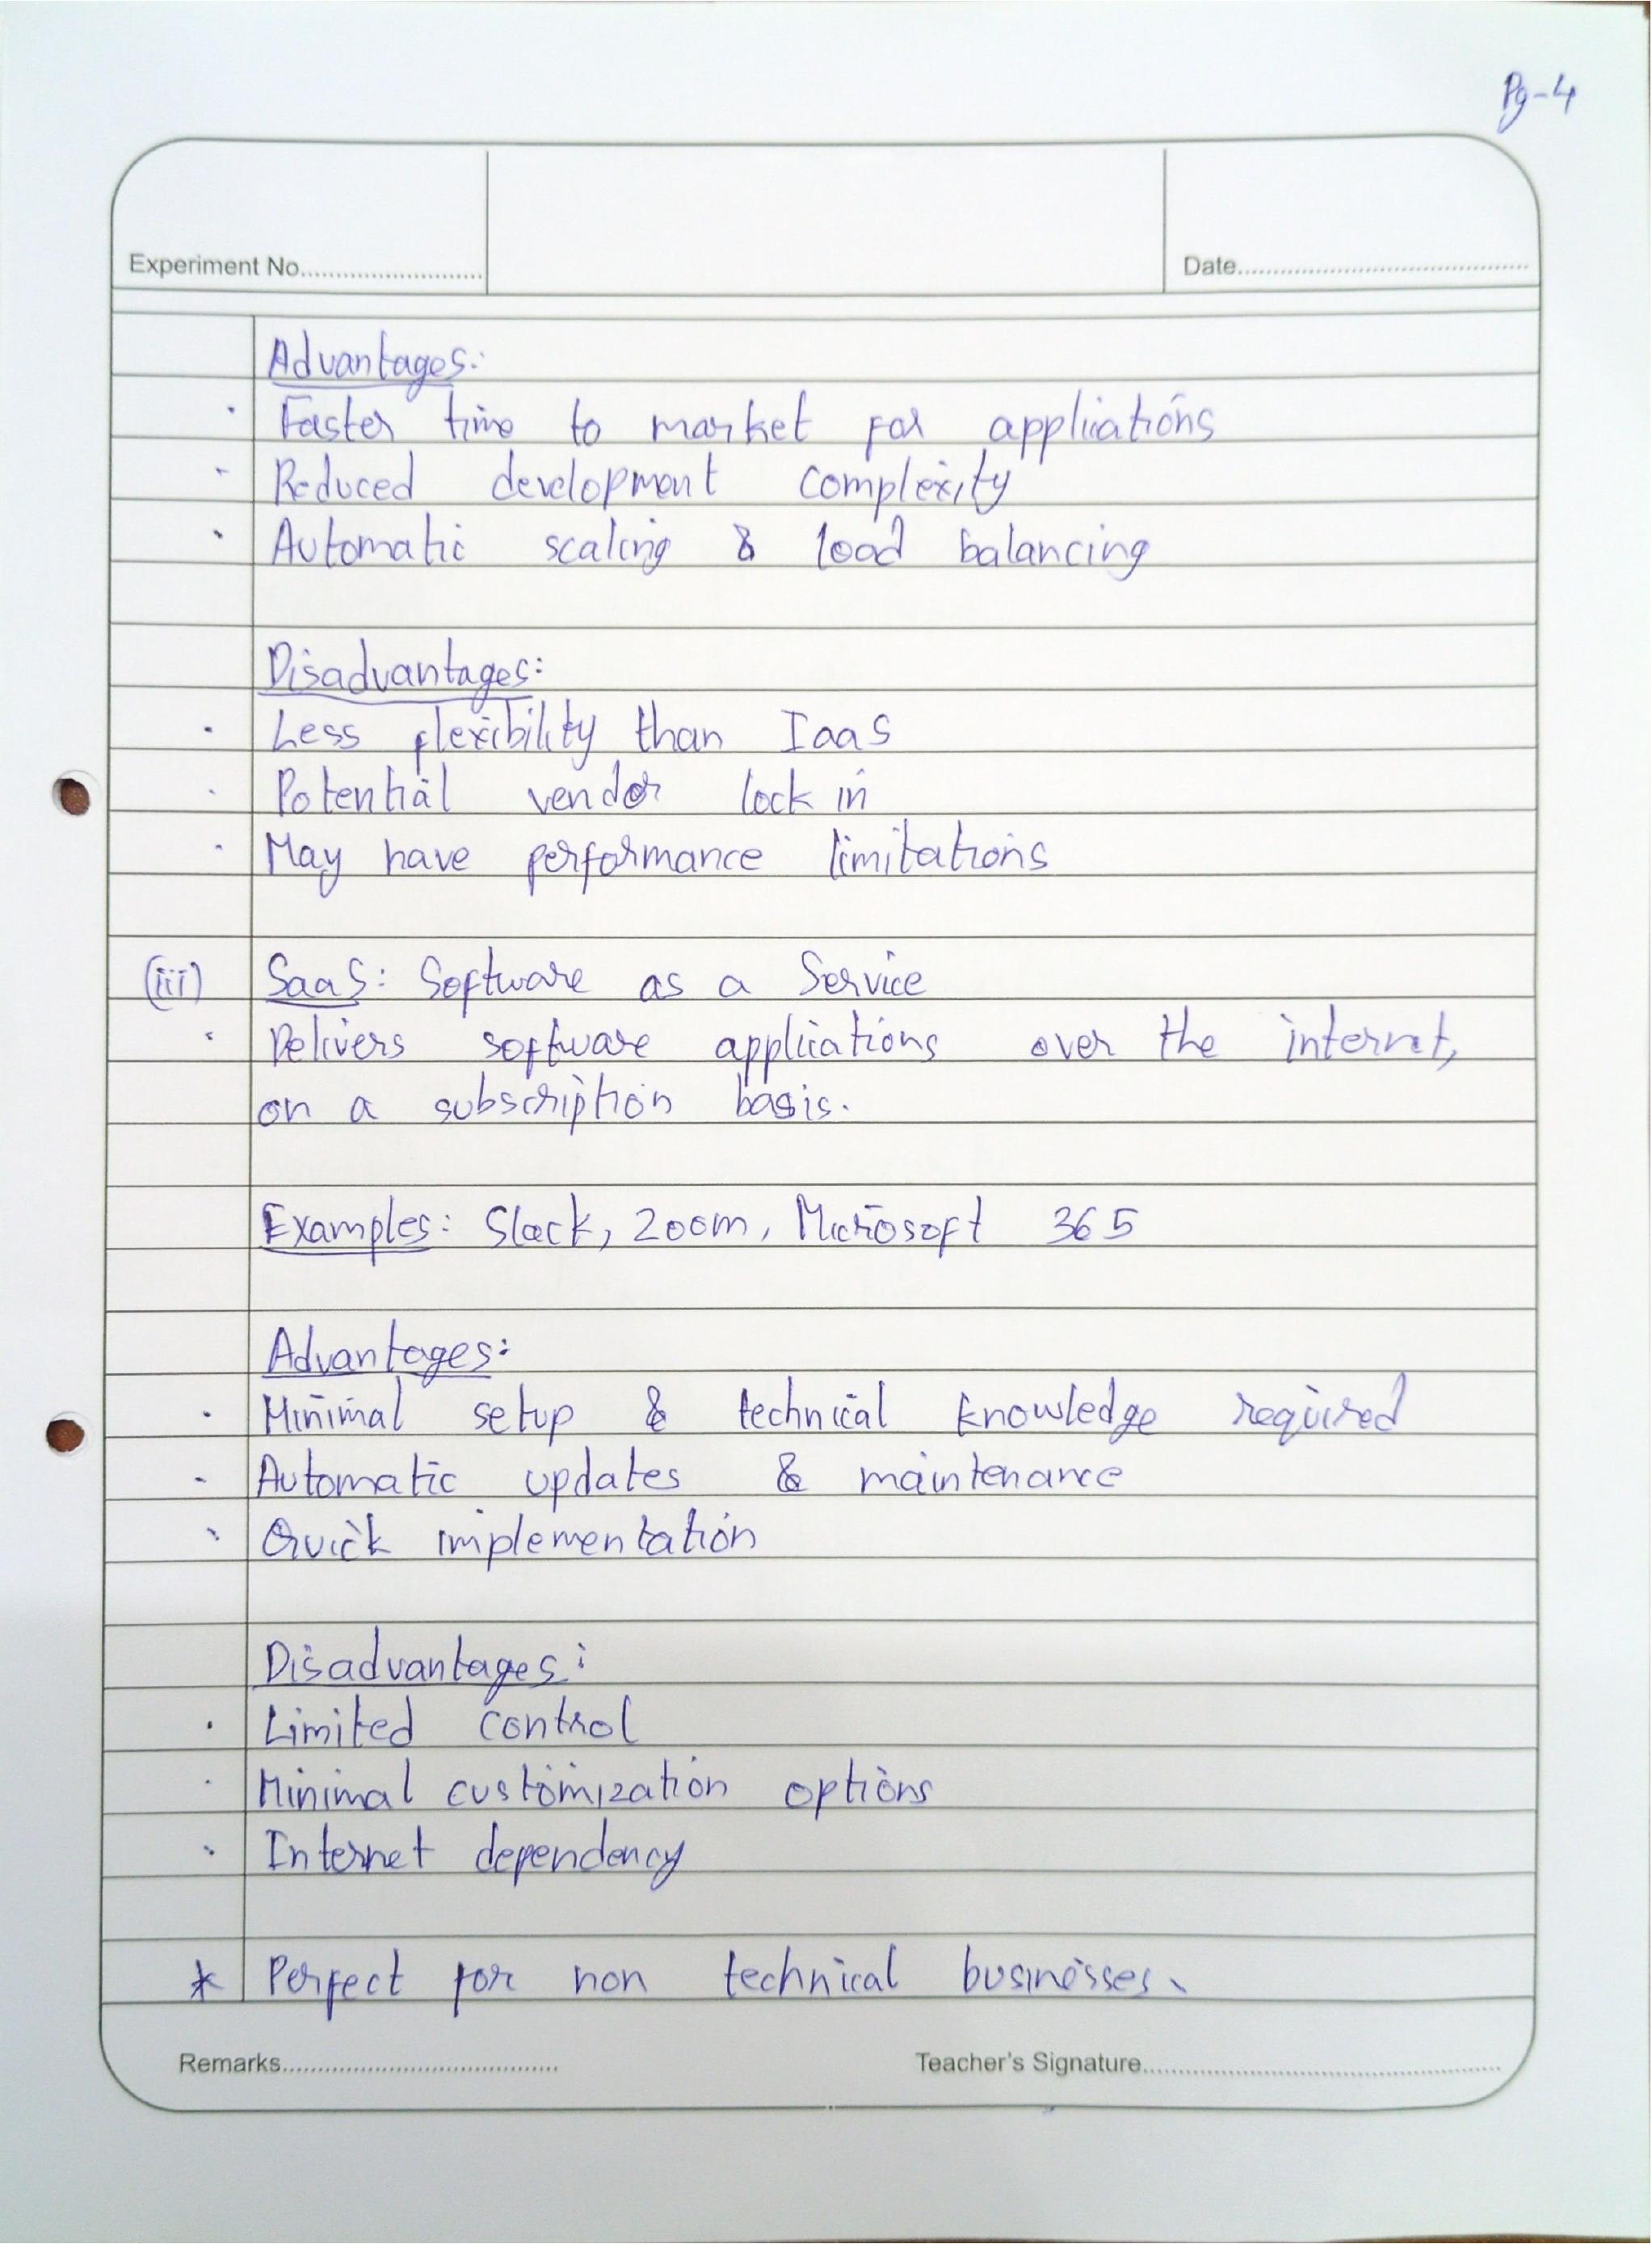 Pg-4
Experiment No.
Date
Advantages:
· Faster time to market for applications
· Reduced development complexity
· Automatic scaling & load balancing
Disadvantages:
· Less flexibility than IaaS
· Potential vendor lock in
· May have performance limitations
(iii) SaaS: Software as a Service
· Delivers software applications over the internet,
on a subscription basis.
Examples: Slack, Zoom, Microsoft 365
Advantages:
· Minimal setup & technical knowledge required
· Automatic updates & maintenance
· Quick implementation
Disadvantages:
· Limited control
· Minimal customization options
· Internet dependency
* Perfect for non technical businesses.
Remarks
Teacher's Signature